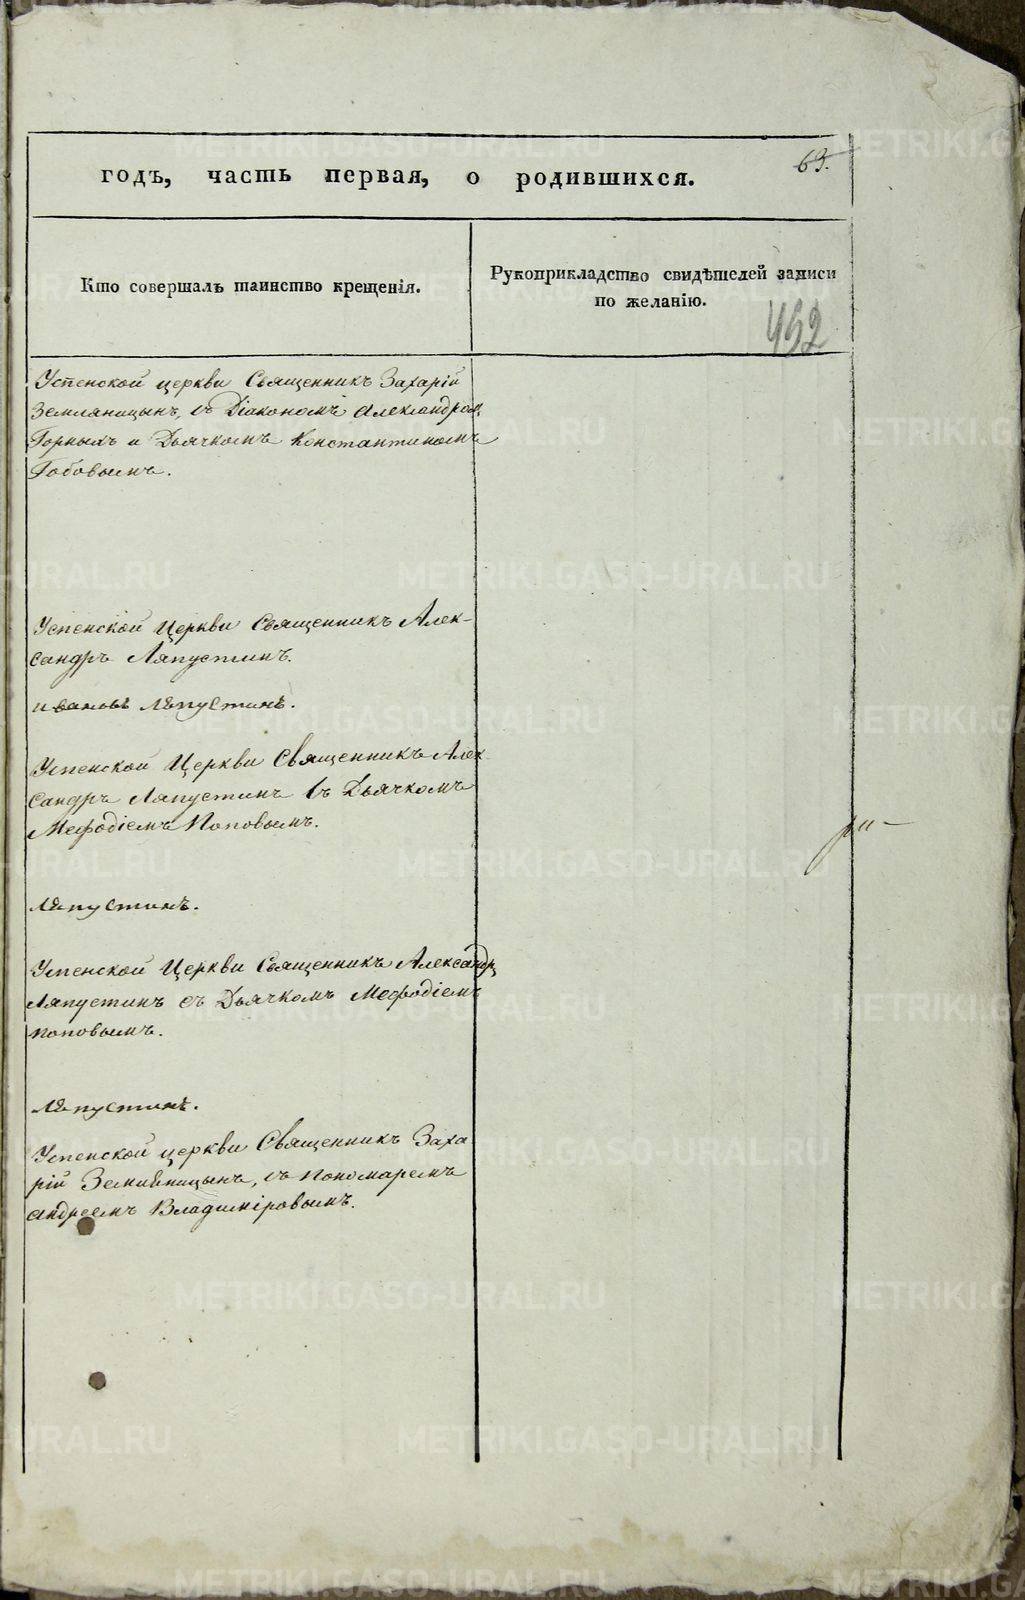 63.
годъ, часть первая, о родившихся.
Кто совершалъ таинство крещенія.
Рукоприкладство свидѣтелей записи
по желанію.
452
Успенской церкви Священникъ Захарій
Земляницынъ, съ Діакономъ Александромъ
Горныхъ и Дьячкомъ Константиномъ
Гобовымъ.
Успенской Церкви Священникъ Алек-
сандръ Ляпустинъ.
Ляпустинъ.
Успенской Церкви Священникъ Алек-
сандръ Ляпустинъ съ Дьячкомъ
Мефодіемъ Поповымъ.
Ляпустинъ.
Успенской Церкви Священникъ Александръ
Ляпустинъ съ Дьячкомъ Мефодіемъ
Поповымъ.
Ляпустинъ.
Успенской церкви Священникъ Заха
рій Земляницынъ, съ Пономаремъ
Андреемъ Владиміровымъ.
METRIKI.GASO-URAL.RU